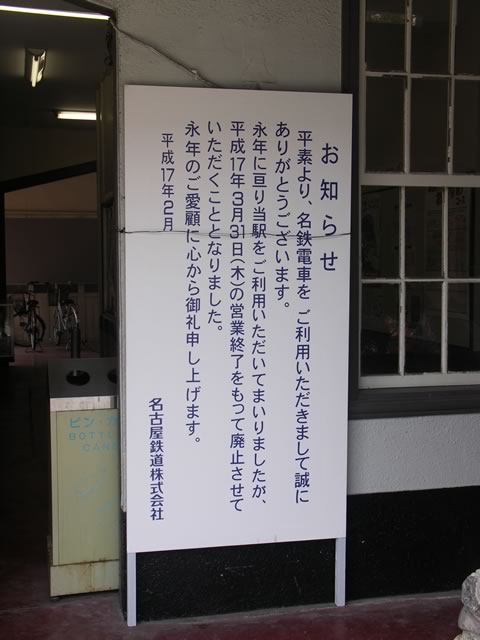 お知らせ
平素より、名鉄電車をご利用いただきまして誠に
ありがとうございます。
永年に亘り当駅をご利用いただいてまいりましたが、
平成17年3月31日(木)の営業終了をもって廃止させて
いただくこととなりました。
永年のご愛顧に心から御礼申し上げます。
平成17年2月
名古屋鉄道株式会社
ビン・カ
BOTTL
CAN